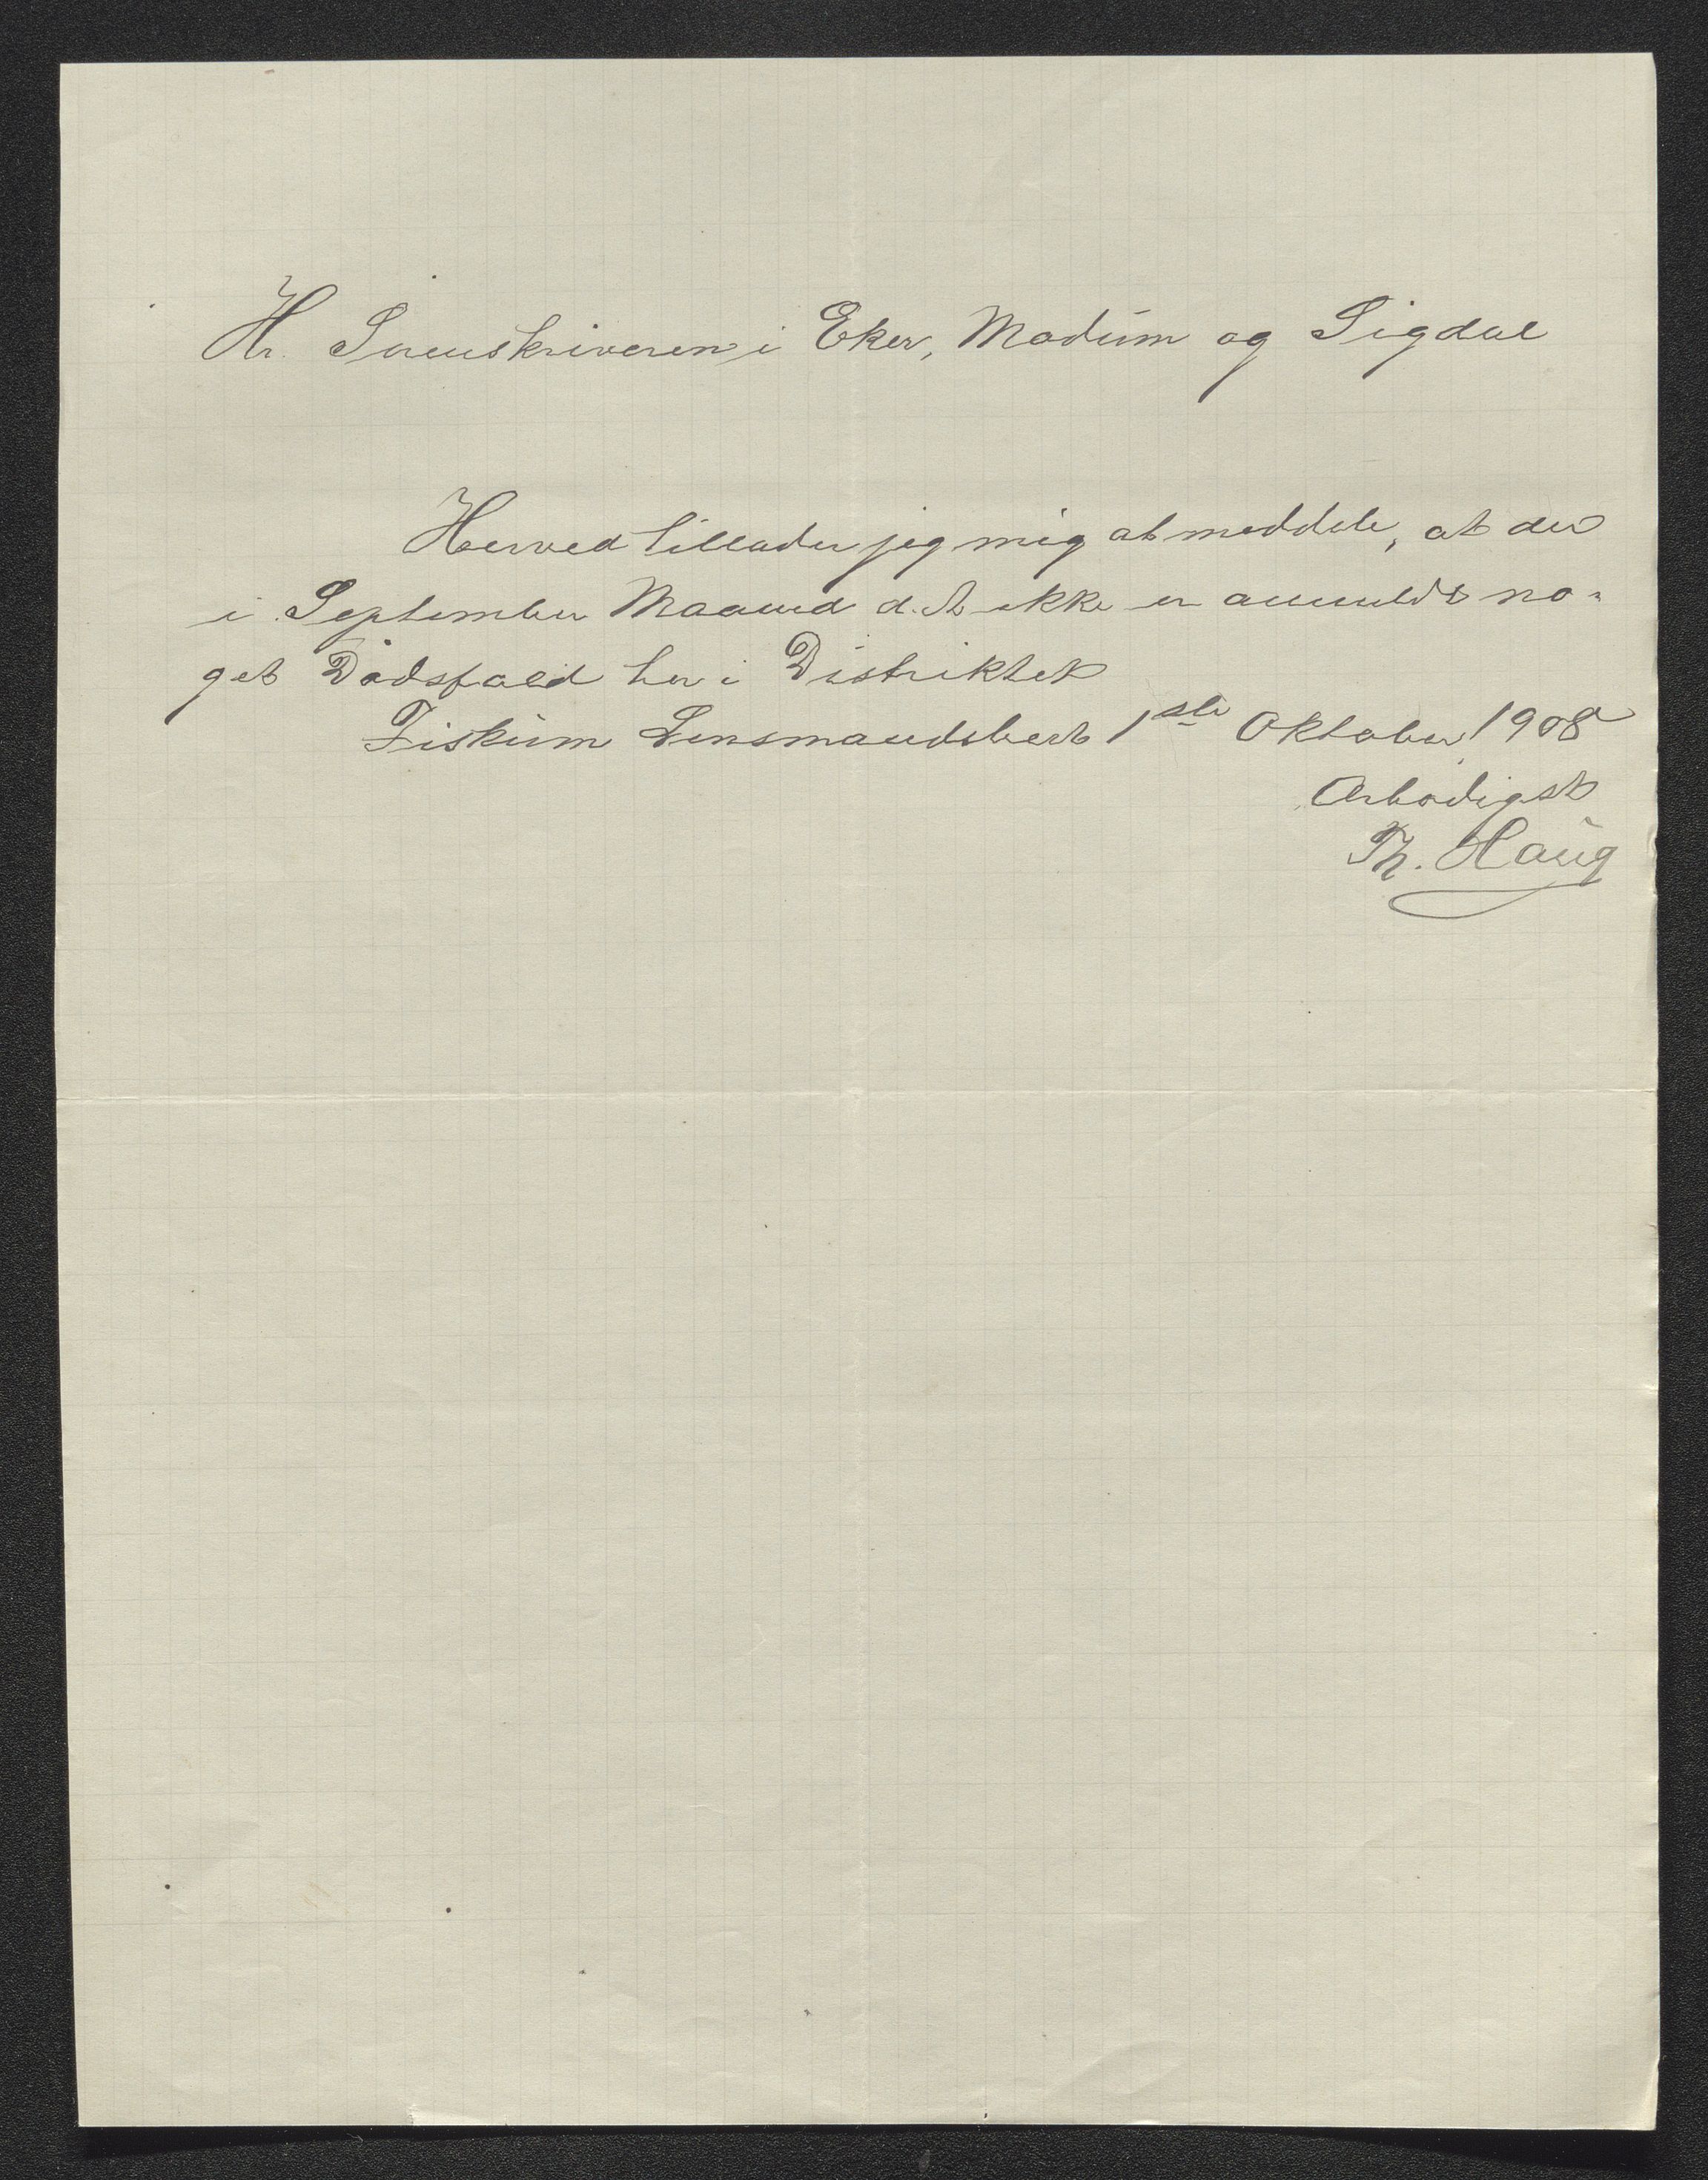 Hr. Sorenskriveren i Eker, Modum og Sigdal
Herved tillader jeg mig at meddele, at der
i September Maaned d. A. ikke er anmeldt no-
get Dødsfald her i Distriktet
Fiskum Lensmandsbest 1ste Oktober 1908
Ærbødigst
Th. Haug